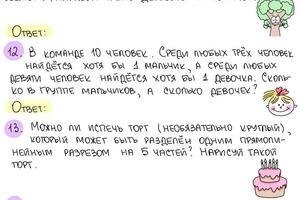 Ответ:
12. В команде 10 человек. Среди любых трёх человек
найдётся хотя бы 1 мальчик, а среди любых
девяти человек найдётся хотя бы 1 девочка. Сколь-
ко в группе мальчиков, а сколько девочек?
Ответ:
13. Можно ли испечь торт (необязательно круглый),
который может быть разделён одним прямоли-
нейным разрезом на 5 частей? Нарисуй такой
торт.